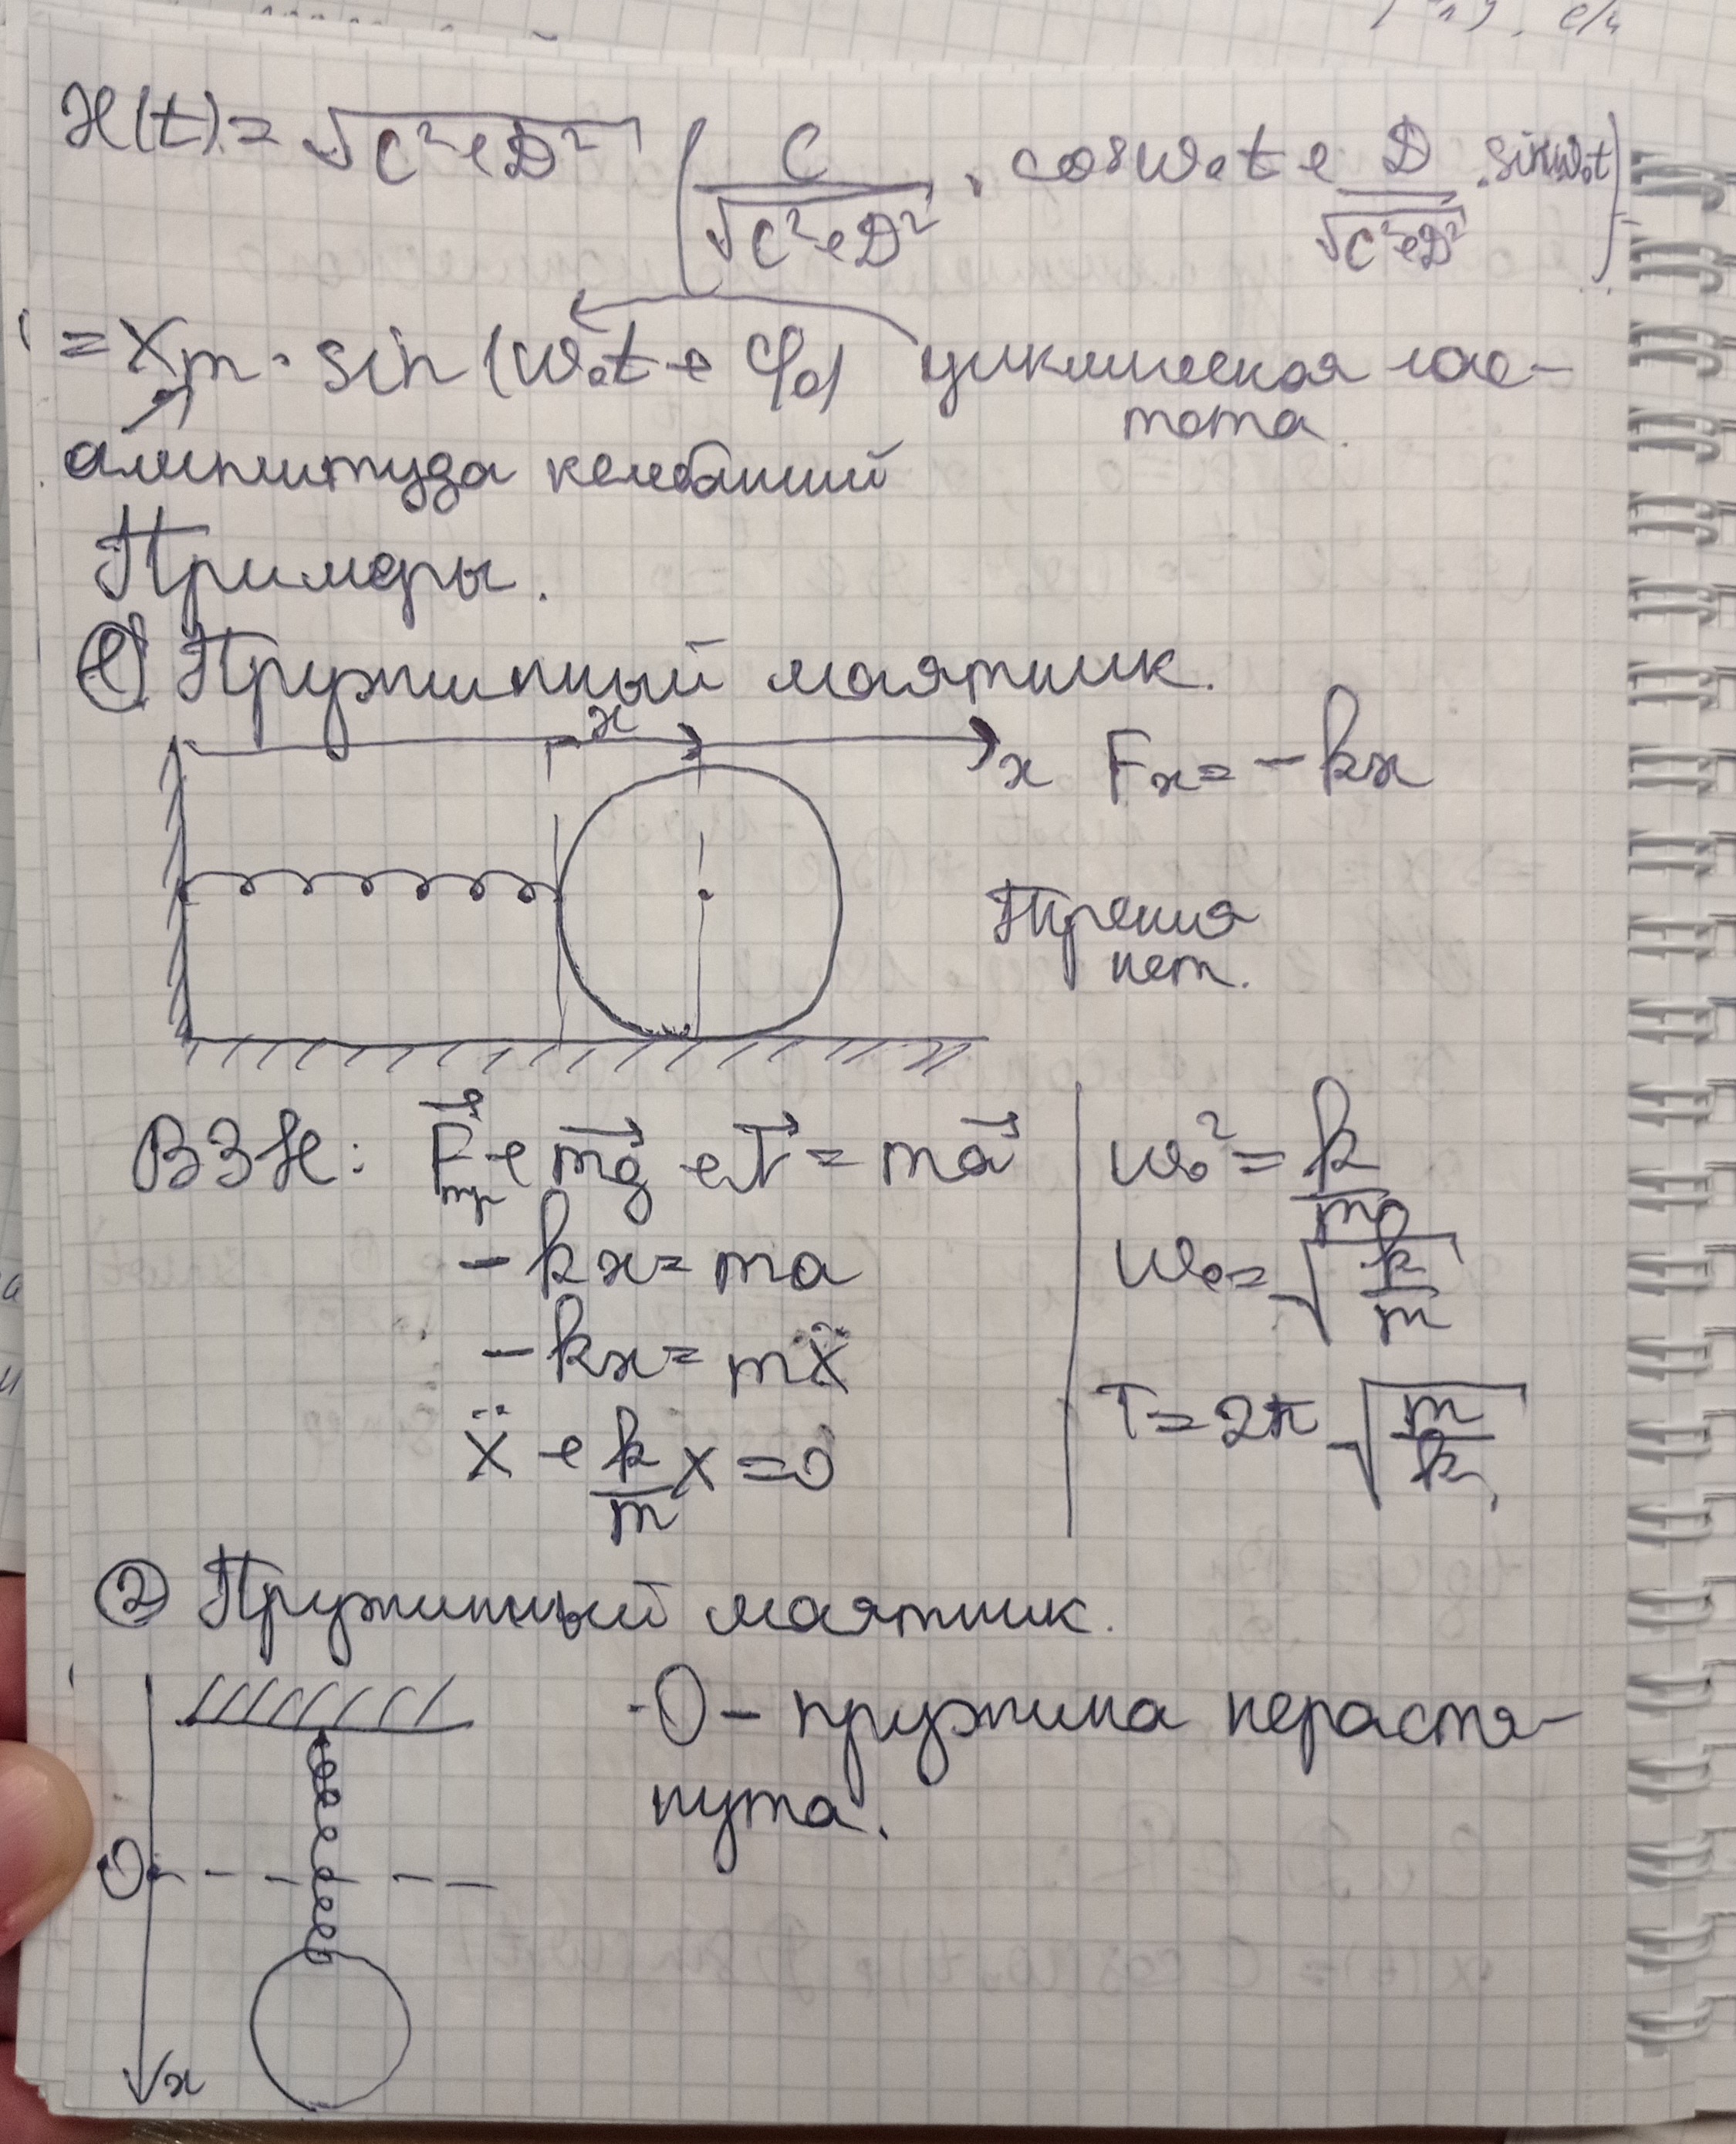 x(t) = √(C²+D²) (C/√(C²+D²) · cosω₀t + D/√(C²+D²) · sinω₀t) =
= Xm · sin(ω₀t + φ₀) циклическая час-
тота.
амплитуда колебаний
Примеры.
① Пружинный маятник.
x
x Fx = -kx
Трения
нет.
ВЗН: F⃗пр + mg⃗ + N⃗ = ma⃗
-kx = ma
-kx = mẍ
ẍ + k/m x = 0
ω₀² = k/m
ω₀ = √(k/m)
T = 2π √(m/k)
② Пружинный маятник.
·O - пружина нерастя-
нута.
O
x